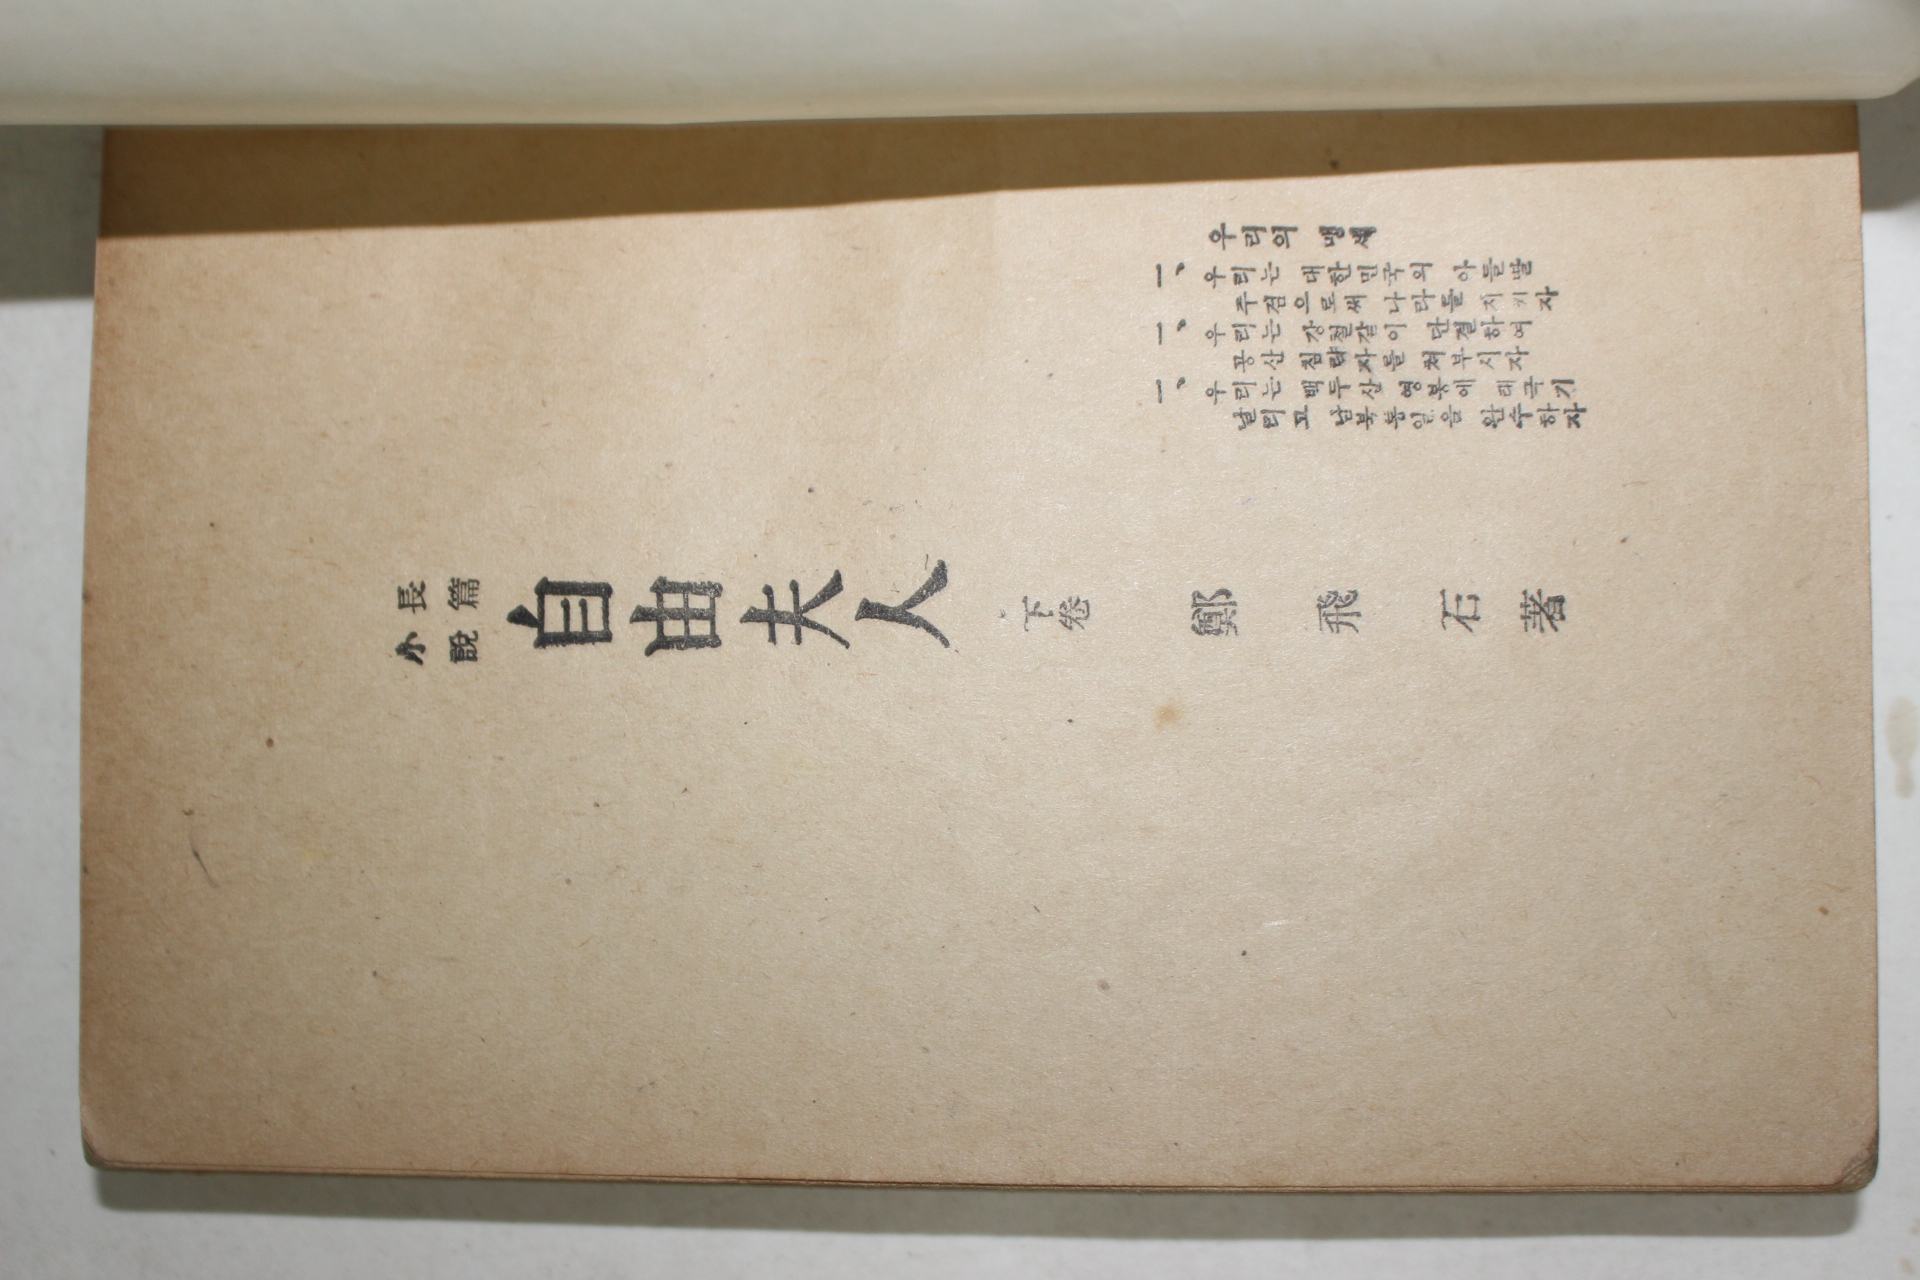 우리의 맹세
一、우리는 대한민국의 아들딸
주검으로써 나라를 지키자
一、우리는 강철같이 단결하여
공산 침략자를 쳐부시자
一、우리는 백두산 영봉에 태극기
날리고 남북통일을 완수하자
長篇
小說
自由夫人
下卷
鄭飛石 著